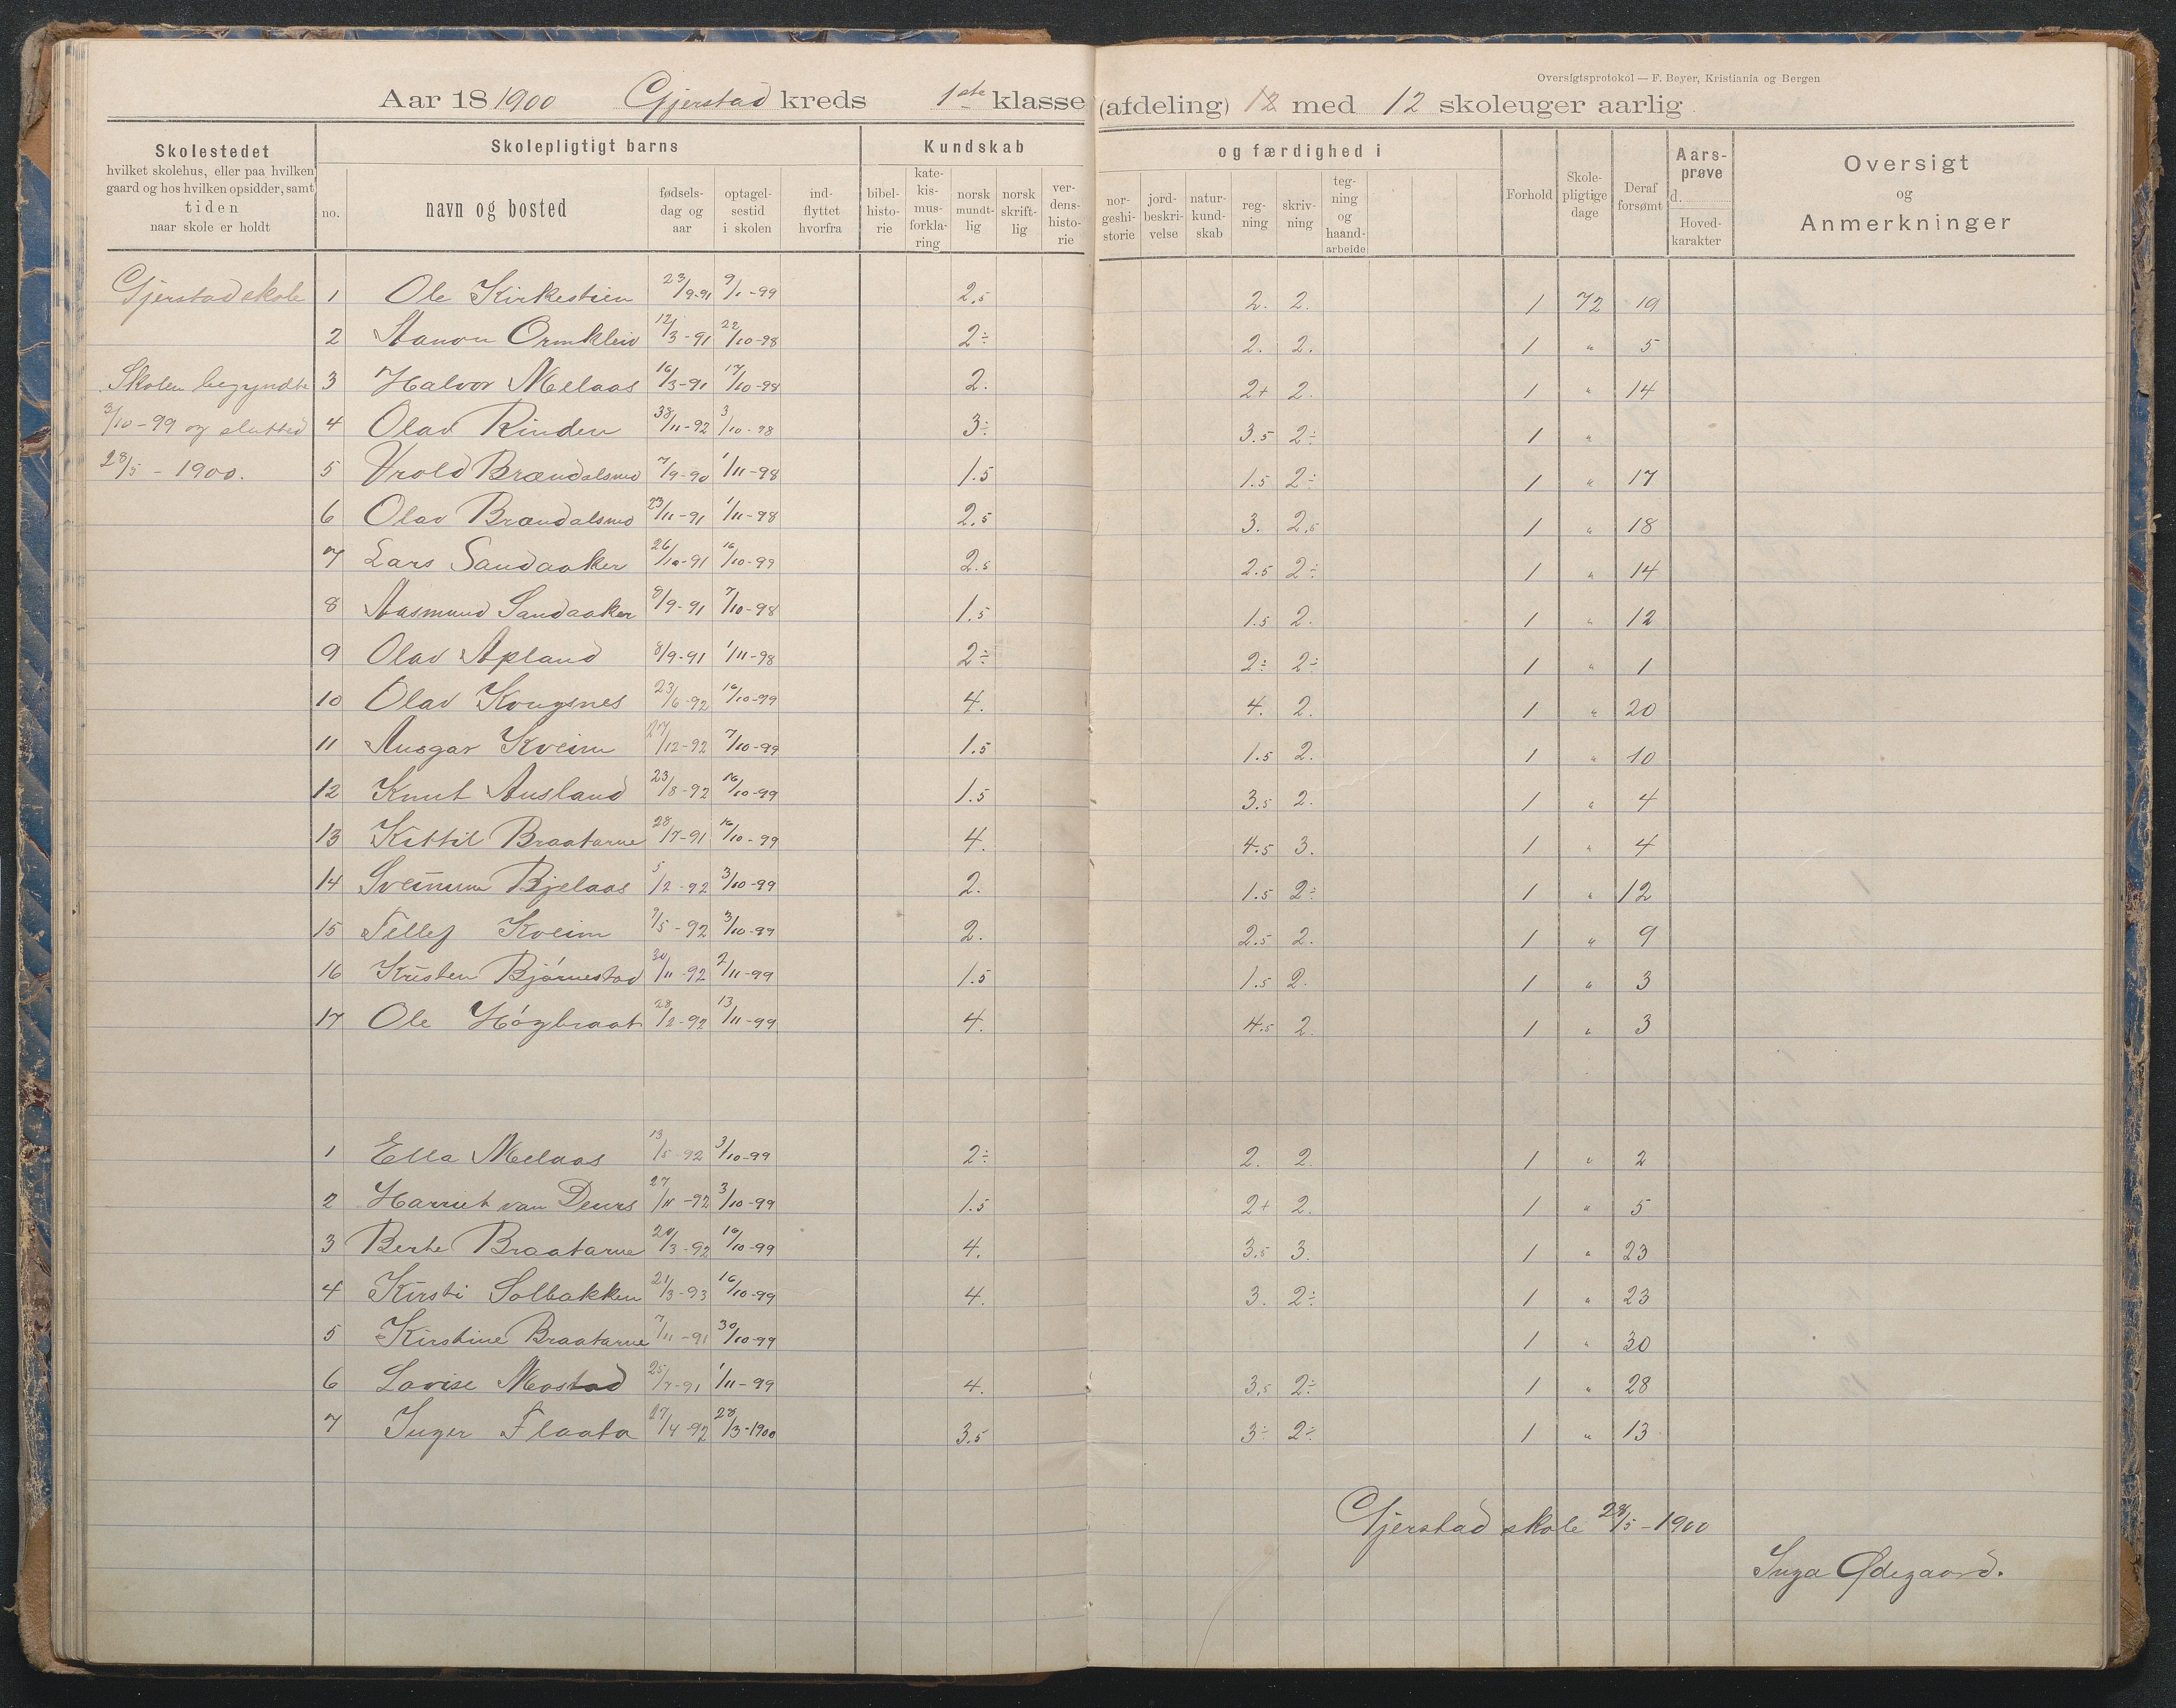 Oversigtsprotokol — F. Beyer, Kristiania og Bergen
Aar 18 1900 Gjerstad kreds 1ste klasse (afdeling) 12 med 12 skoleuger aarlig
Skolestedet
hvilket skolehus, eller paa hvilken
gaard og hos hvilken opsidder, samt
tiden
naar skole er holdt
Skolepligtigt barns
no.
navn og bosted
fødsels-
dag og
aar
optagel-
sestid
i skolen
ind-
flyttet
hvorfra
Kundskab
bibel-
histo-
rie
kate-
kis-
mus-
forkla-
ring
norsk
mundt-
lig
norsk
skrift-
lig
ver-
dens-
histo-
rie
og færdighed i
nor-
geshi-
storie
jord-
beskri-
velse
natur-
kund-
skab
reg-
ning
skriv-
ning
teg-
ning
og
haand-
arbeide
Forhold
Skole-
pligtige
dage
Deraf
forsømt
Aars-
prøve
d.
Hoved-
karakter
Oversigt
og
Anmerkninger
Gjerstad skole 1 Ole Kirkestien 23/9-91 9/1-99 2.5 2. 2. 1 72 19
2 Aanon Ormkleiv 12/3-91 22/10-98 2÷ 2. 2. 1 " 5
Skolen begyndte 3 Halvor Melaas 16/3-91 17/10-98 2. 2+ 2. 1 " 14
3/10-99 og slutted 4 Olav Rinden 11-92 3/10-98 3÷ 3.5 2÷ 1 "
28/5-1900. 5 Vrold Brændalsmo 7/9-90 1/11-98 1.5 1.5 2÷ 1 " 17
6 Olav Brændalsmo 23/11-91 1/11-98 2.5 3. 2.5 1 " 18
7 Lars Sandaaker 26/10-91 16/10-99 2.5 2.5 2÷ 1 " 14
8 Aasmund Sandaaker 8/9-91 7/10-98 1.5 1.5 2. 1 " 12
9 Olav Apland 8/9-91 1/11-98 2÷ 2÷ 2÷ 1 " 1
10 Olav Kongsnes 23/6-92 16/10-99 4. 4. 2. 1 " 20
11 Ansgar Kveim 27/12-92 7/10-99 1.5 1.5 2. 1 " 10
12 Knut Ausland 23/8-92 16/10-99 1.5 3.5 2. 1 " 4
13 Kittil Braatarne 28/7-91 16/10-99 4. 4.5 3. 1 " 4
14 Sveinum Bjelaas 5/2-92 3/10-99 2. 1.5 2÷ 1 " 12
15 Tellef Kveim 9/5-92 3/10-99 2. 2.5 2. 1 " 9
16 Kristen Bjørnestad 30/11-92 2/11-99 1.5 1.5 2. 1 " 3
17 Ole Høgbraat 28/2-92 13/11-99 4. 4.5 2. 1 " 3
1 Ella Melaas 13/5-92 3/10-99 2÷ 2. 2. 1 " 2
2 Harriet van Deurs 27/11-92 3/10-99 1.5 2+ 2. 1 " 5
3 Berte Braatarne 3-92 10-99 4. 3.5 3. 1 " 23
4 Kirsti Solbakken 21/3-93 16/10-99 4. 3. 2÷ 1 " 23
5 Kirstine Braatarne 7/11-91 30/10-99 1 " 30
6 Lovise Mostad 25/7-91 1/11-99 4. 3.5 2÷ 1 " 28
7 Inger Flaata 27/4-92 28/3-1900 3.5 3÷ 2÷ 1 " 13
Gjerstad skole 28/5-1900
Inga Ødegaard.